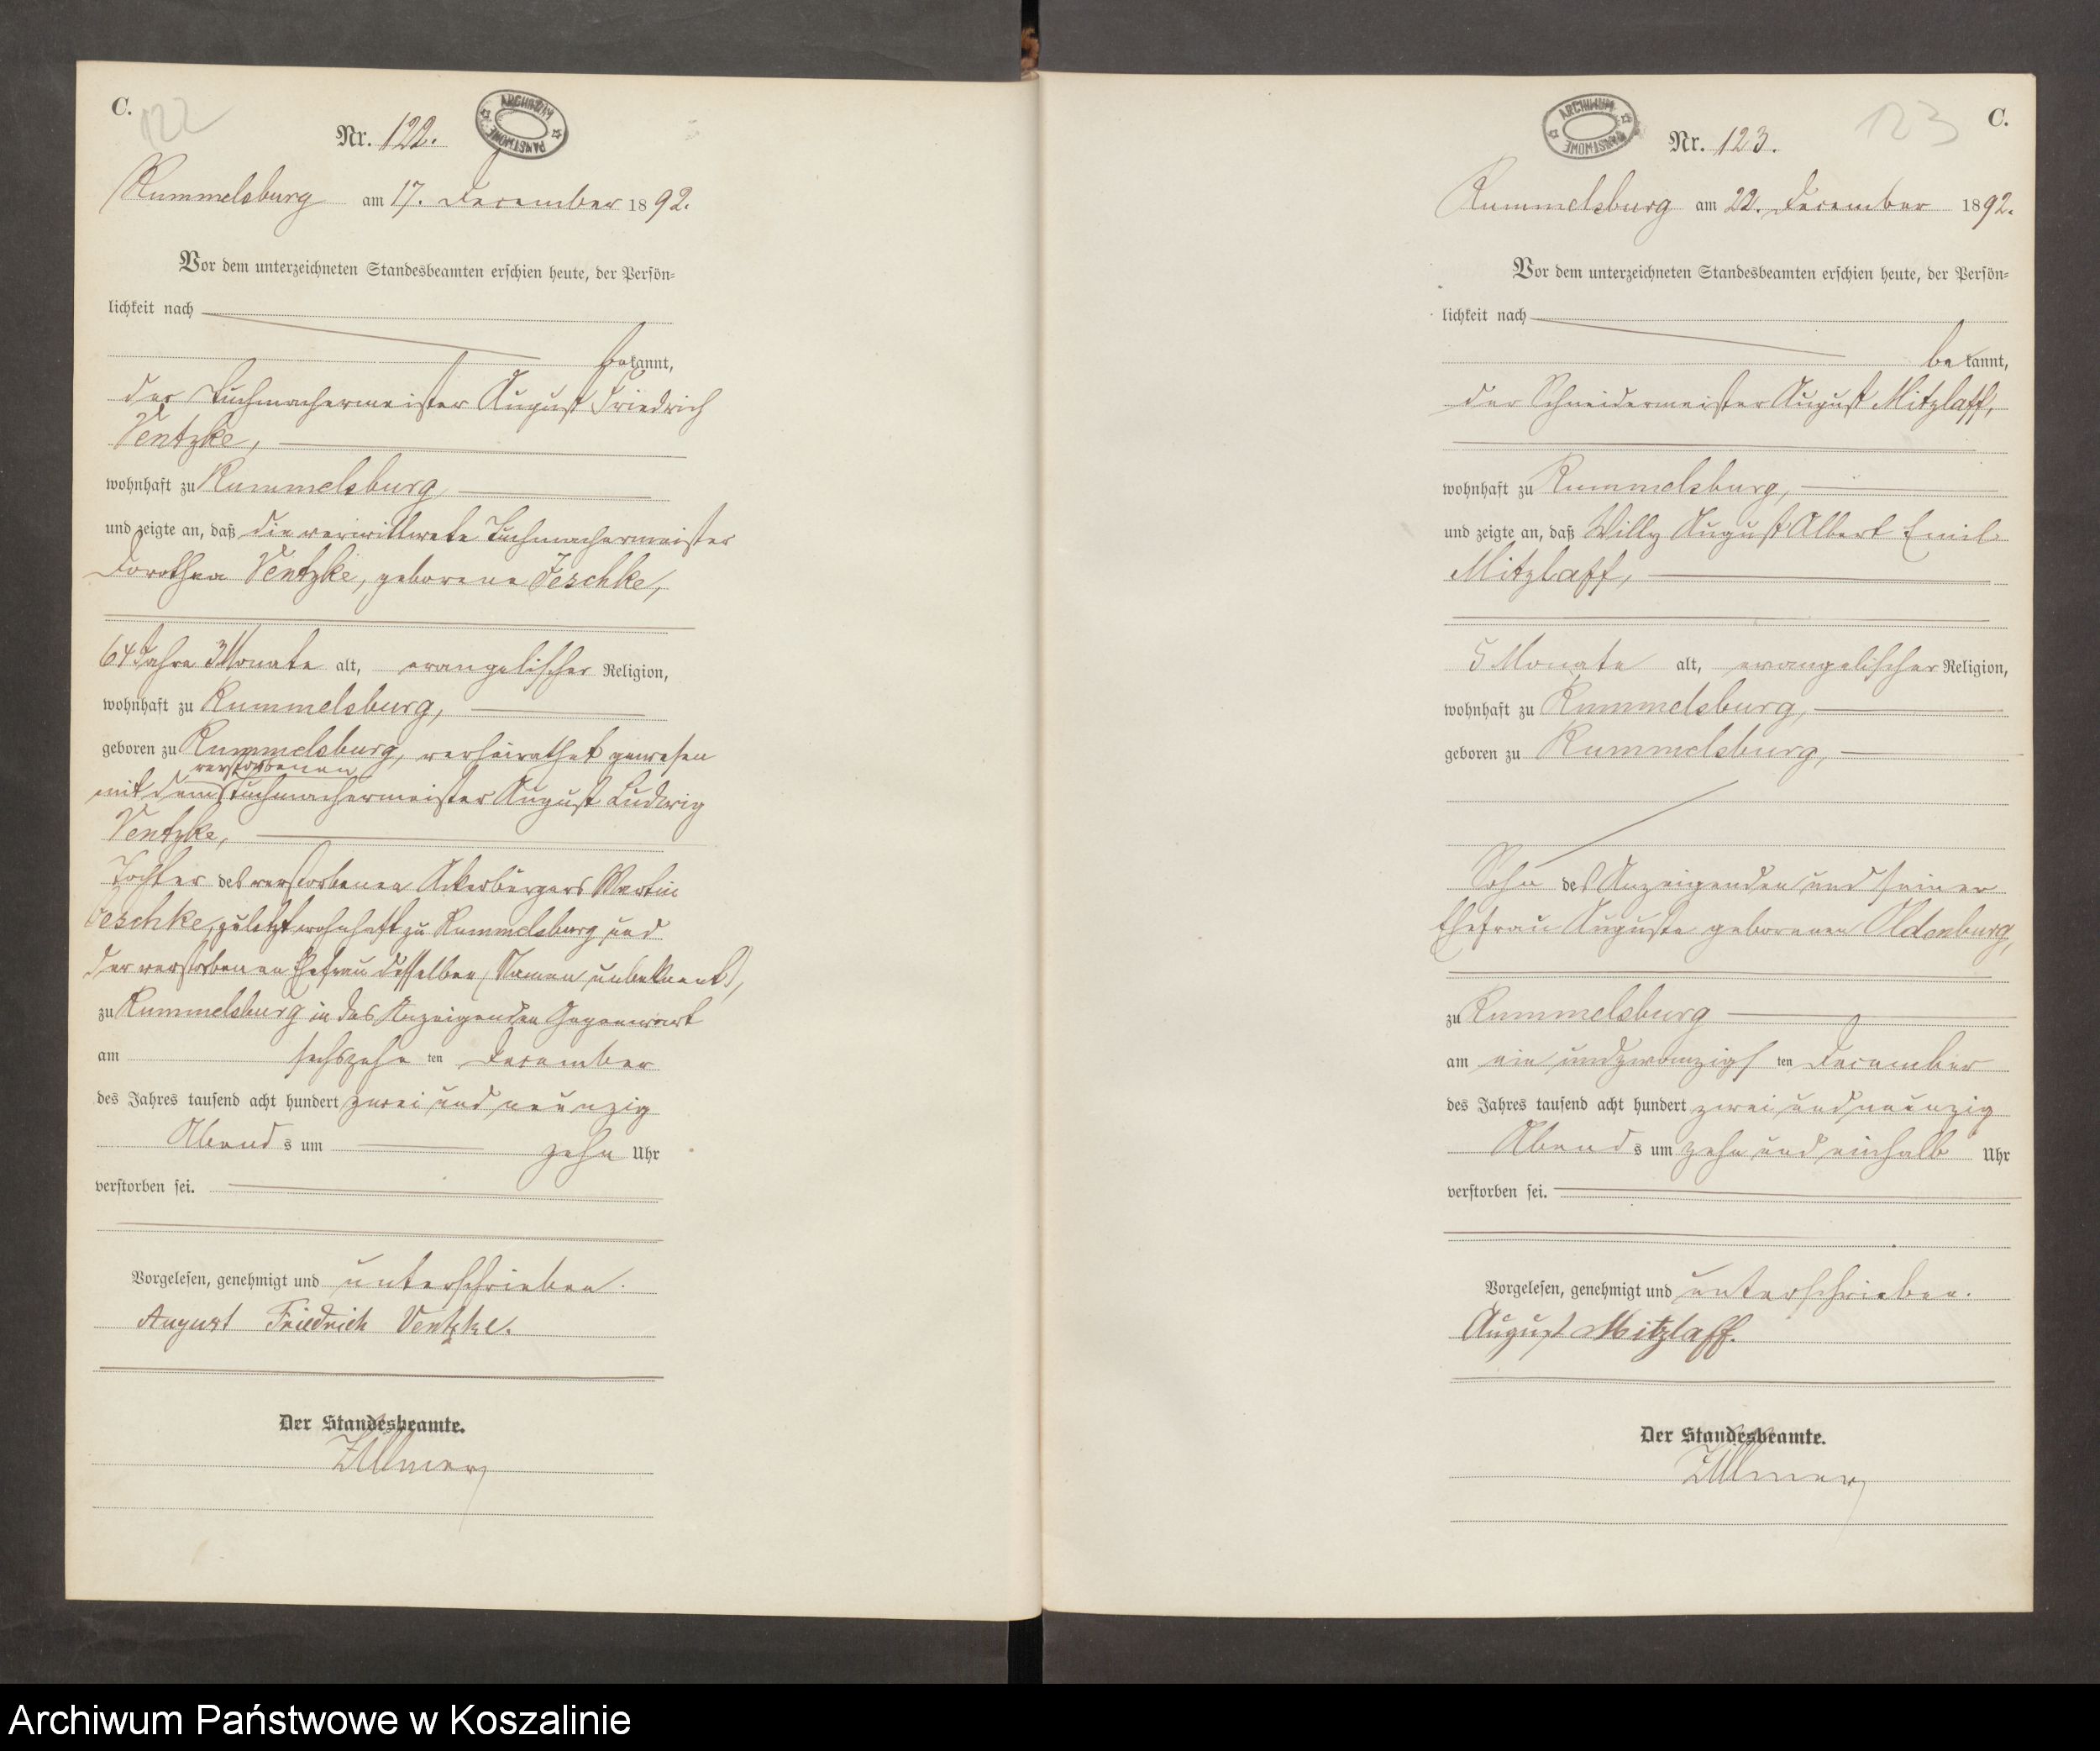 C.
122
Nr. 122.
ARCHIWUM PAŃSTWOWE
Rummelsburg am 17. December 1892.
Vor dem unterzeichneten Standesbeamten erschien heute, der Persön-
lichkeit nach
bekannt,
der Tuchmachermeister August Friedrich
Ventzke,
wohnhaft zu Rummelsburg
und zeigte an, daß die verwittwete Tuchmachermeister
Dorothea Ventzke, geborene Jeschke,
64 Jahre 3 Monate alt, evangelischer Religion,
wohnhaft zu Rummelsburg,
geboren zu Rummelsburg, verheirathet gewesen
verstorbenen
mit dem Tuchmachermeister August Ludwig
Ventzke,
Tochter des verstorbenen Ackerbürgers Martin
Jeschke, zuletzt wohnhaft zu Rummelsburg und
der verstorbenen Ehefrau desselben (Namen unbekannt),
zu Rummelsburg in des Anzeigenden Gegenwart
am sechszehn ten December
des Jahres tausend acht hundert zwei und neunzig
Abends um zehn Uhr
verstorben sei.
Vorgelesen, genehmigt und unterschrieben.
August Friedrich Ventzke.
Der Standesbeamte.
C.
123
Nr. 123.
ARCHIWUM PAŃSTWOWE
Rummelsburg am 22. December 1892.
Vor dem unterzeichneten Standesbeamten erschien heute, der Persön-
lichkeit nach
bekannt,
der Schneidermeister August Mitzlaff,
wohnhaft zu Rummelsburg,
und zeigte an, daß Willy August Albert Emil
Mitzlaff,
5 Monate alt, evangelischer Religion,
wohnhaft zu Rummelsburg,
geboren zu Rummelsburg,
Sohn des Anzeigenden und seiner
Ehefrau Auguste geborenen Oldenburg,
zu Rummelsburg
am ein und zwanzigs ten December
des Jahres tausend acht hundert zwei und neunzig
Abends um zehn und einhalb Uhr
verstorben sei.
Vorgelesen, genehmigt und unterschrieben.
August Mitzlaff.
Der Standesbeamte.
Archiwum Państwowe w Koszalinie